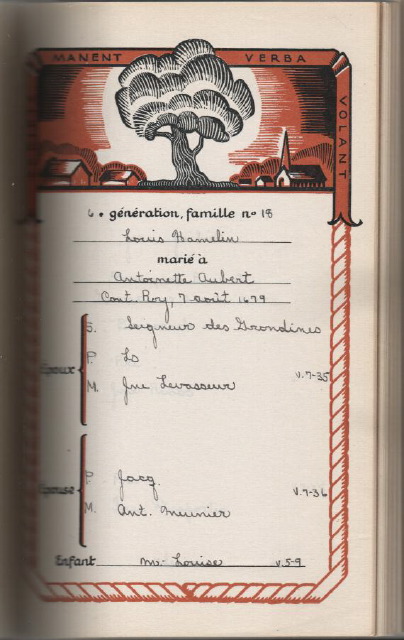 MANENT VERBA VOLANT
6e génération, famille nº 18
Louis Hamelin
marié à
Antoinette Aubert
Cont. Roy, 7 août 1679
S. Seigneur des Grondines
Époux P. Ls
M. Jne Levasseur v.7-35
Épouse P. Jacq. v.7-36
M. Ant. Meunier
Enfant M- Louise v.5-9